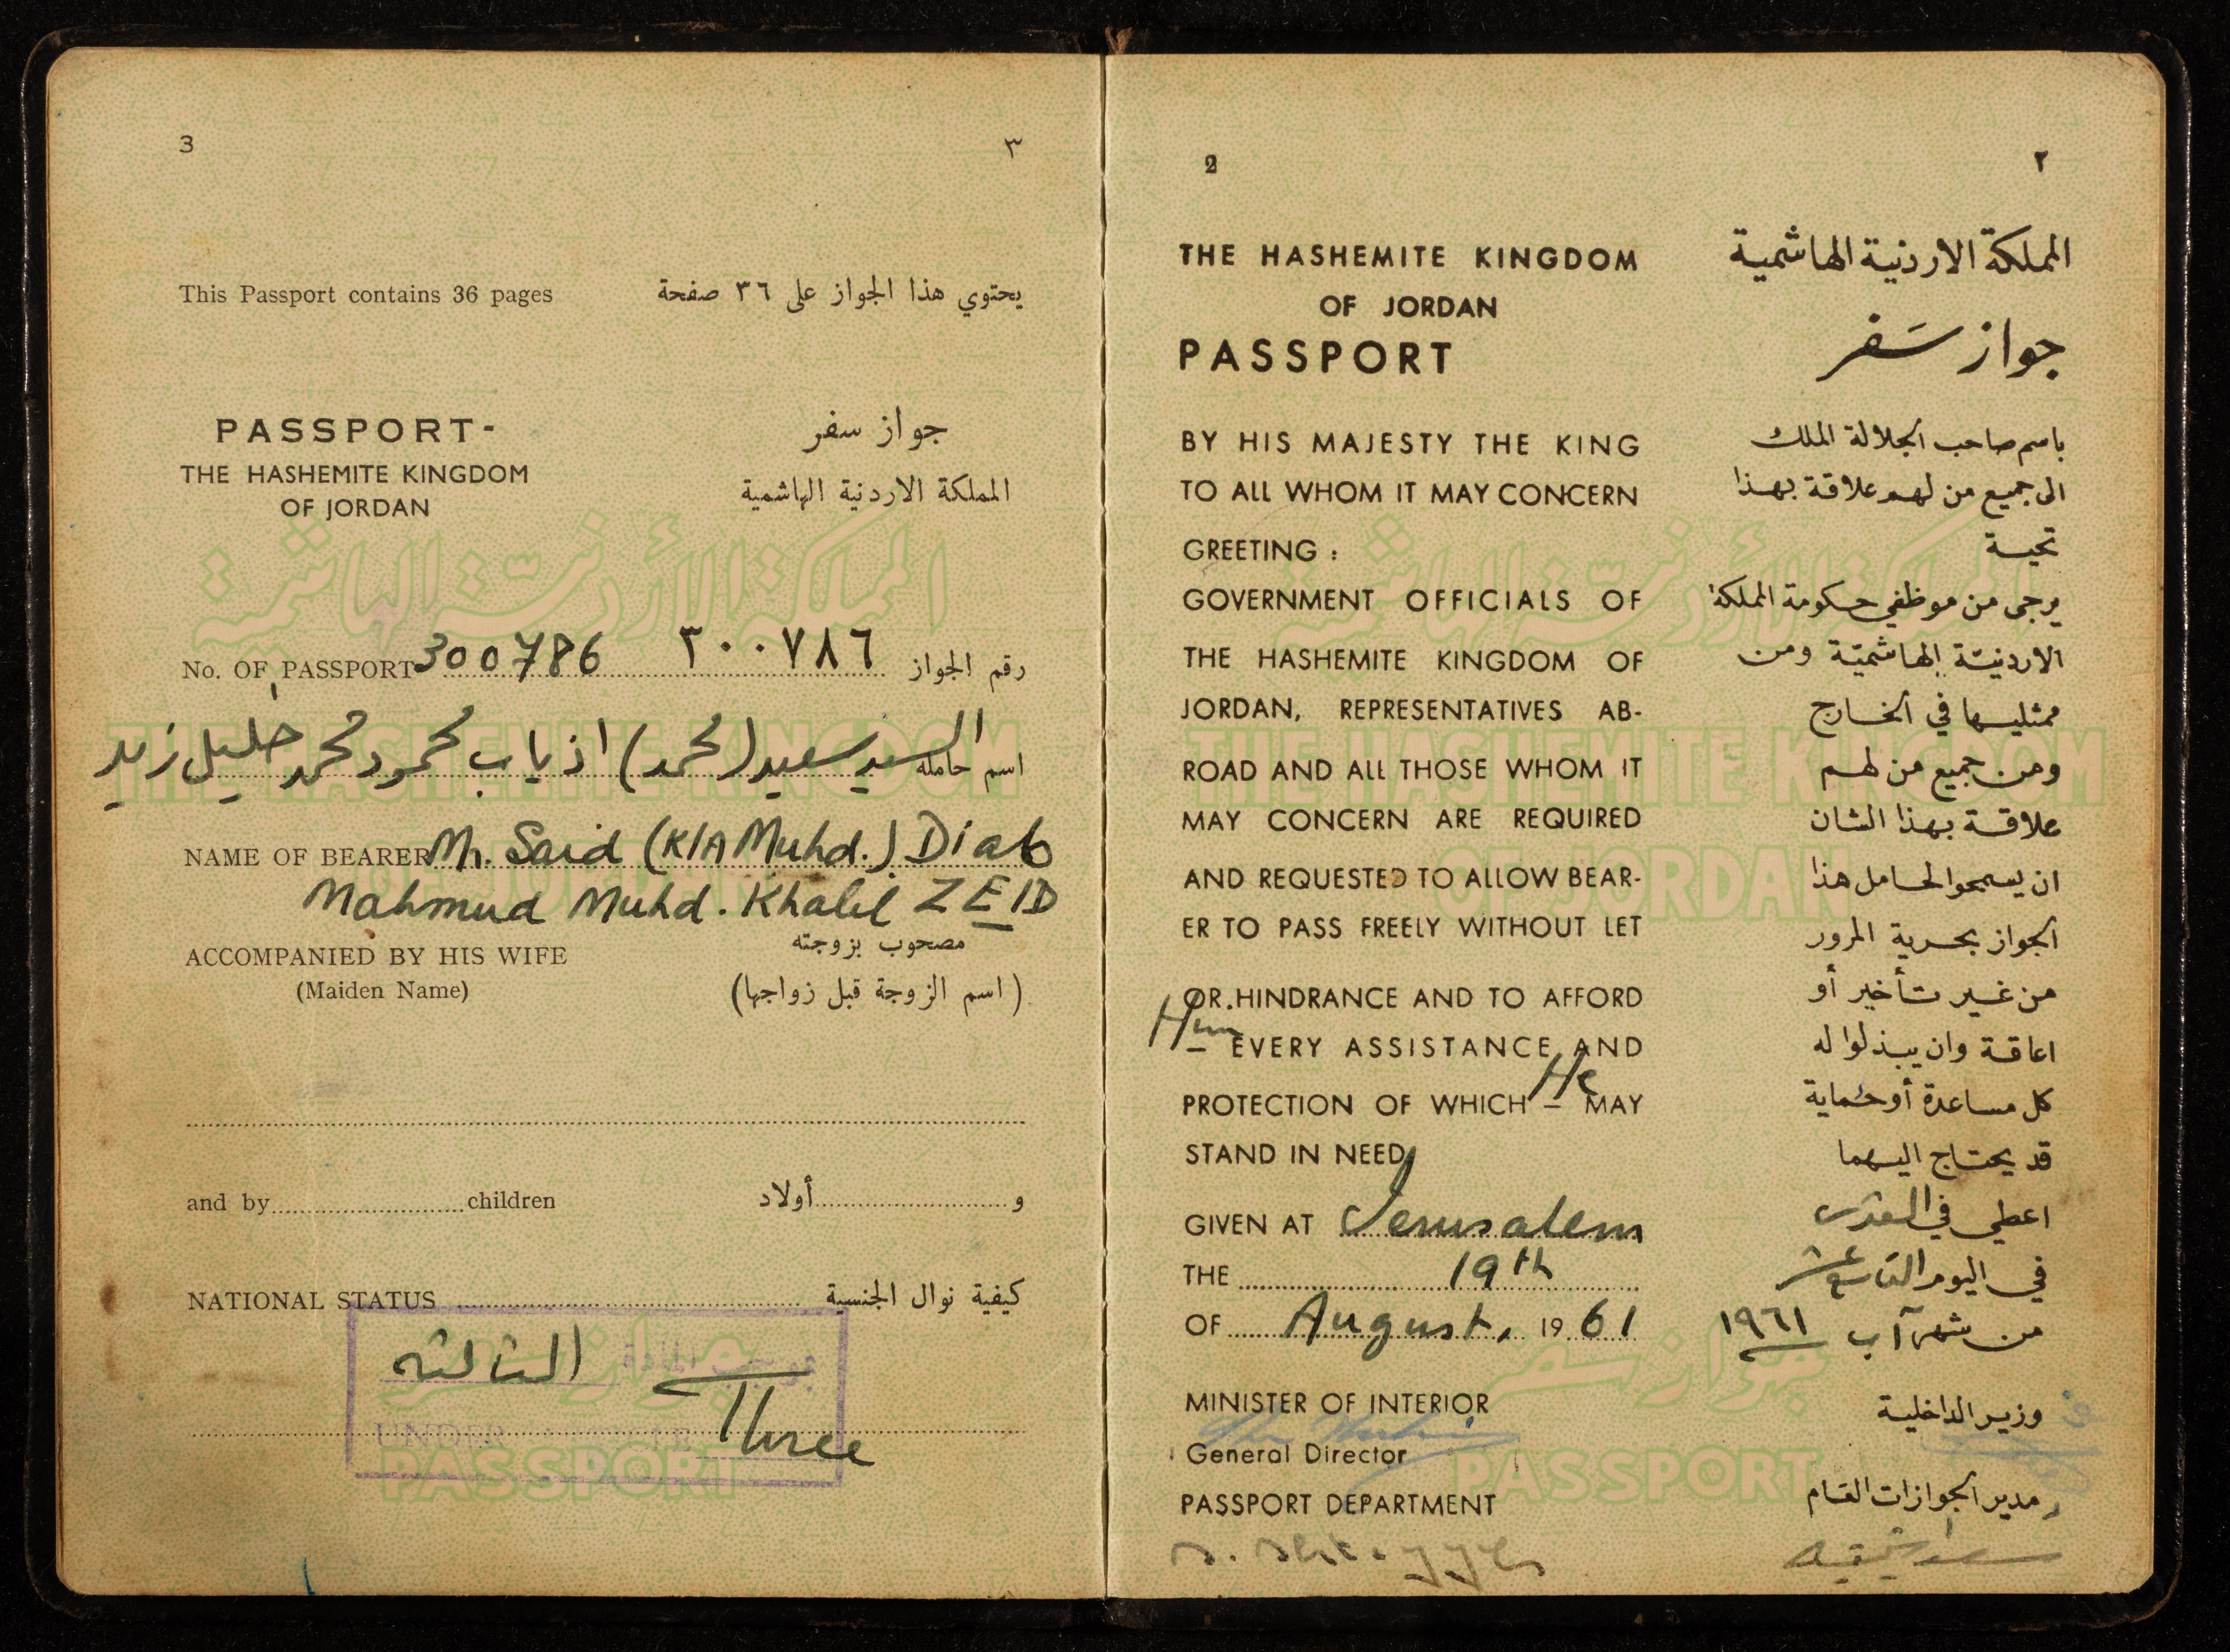 3 ٣
This Passport contains 36 pages يحتوي هذا الجواز على ٣٦ صفحة
PASSPORT- جواز سفر
THE HASHEMITE KINGDOM المملكة الاردنية الهاشمية
OF JORDAN
المملكة الأردنيّة الهاشمية
No. OF PASSPORT 300786 ٣٠٠٧٨٦ رقم الجواز
THE HASHEMITE KINGDOM
OF JORDAN
اسم حامله السيد سعيد (محمد) اذياب محمود محمد خليل زيد
NAME OF BEARER Mr. Said (K/A Muhd.) Diab
Mahmud Muhd. Khalil ZEID
ACCOMPANIED BY HIS WIFE مصحوب بزوجته
(Maiden Name) (اسم الزوجة قبل زواجها)
and by children و أولاد
NATIONAL STATUS كيفية نوال الجنسية
جواز سفر
بموجب المادة الثالثه
UNDER Three
PASSPORT
2 ٢
THE HASHEMITE KINGDOM المملكة الاردنية الهاشمية
OF JORDAN
PASSPORT جواز سَفر
BY HIS MAJESTY THE KING باسم صاحب الجلالة الملك
TO ALL WHOM IT MAY CONCERN الى جميع من لهم علاقة بهذا
GREETING : تحية
المملكة الأردنيّة الهاشمية
GOVERNMENT OFFICIALS OF يرجى من موظفي حكومة المملكة
THE HASHEMITE KINGDOM OF الاردنيّة الهاشميّة ومن
JORDAN, REPRESENTATIVES AB- ممثليها في الخارج
THE HASHEMITE KINGDOM
OF JORDAN
ROAD AND ALL THOSE WHOM IT ومن جميع من لهم
MAY CONCERN ARE REQUIRED علاقة بهذا الشان
AND REQUESTED TO ALLOW BEAR- ان يسمحوا لحامل هذا
ER TO PASS FREELY WITHOUT LET الجواز بحرية المرور
OR HINDRANCE AND TO AFFORD من غير تأخير أو
Him EVERY ASSISTANCE AND اعاقة وان يبذلوا له
PROTECTION OF WHICH He MAY كل مساعدة أو حماية
STAND IN NEED قد يحتاج اليهما
GIVEN AT Jerusalem اعطي في القدس
THE 19th في اليوم التاسع عشر
OF August, 19 61 من شهر آب ١٩٦١
جواز سفر
MINISTER OF INTERIOR وزير الداخلية
General Director
PASSPORT
PASSPORT DEPARTMENT مدير الجوازات العام